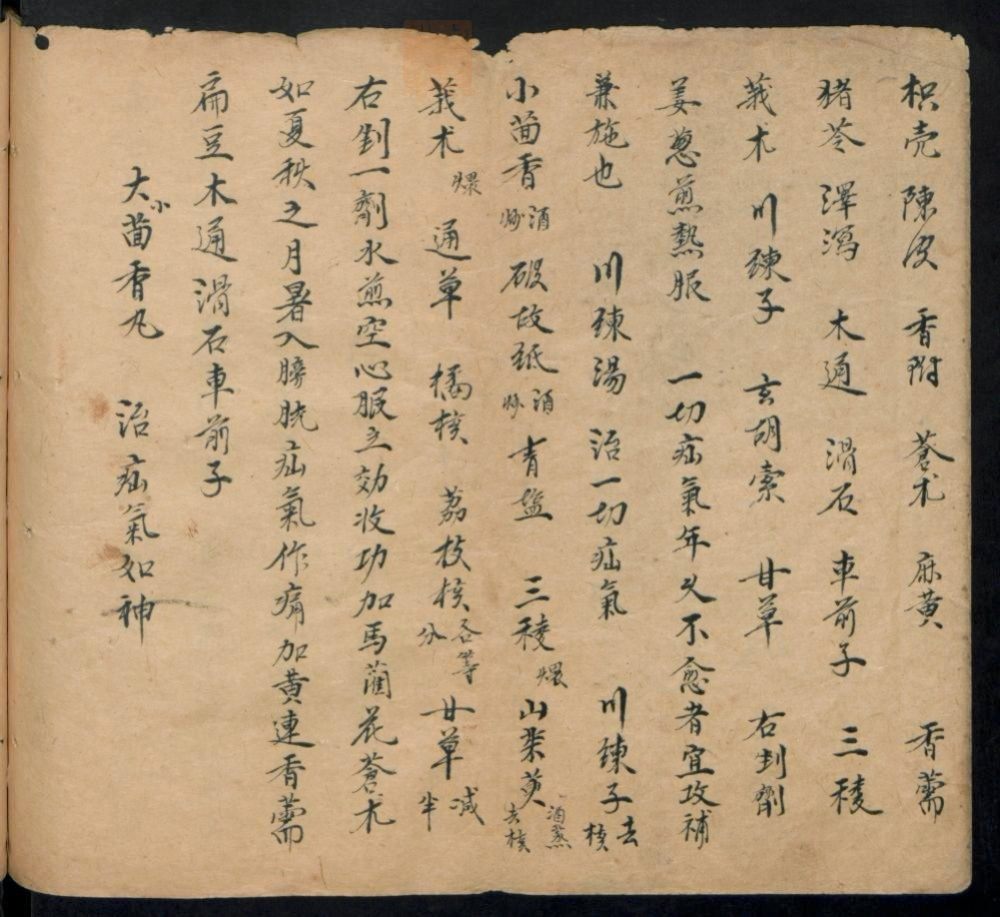 枳壳 陳皮 香附 蒼朮 麻黄 香薷
猪苓 澤瀉 木通 滑石 車前子 三稜
莪朮 川練子 玄胡索 甘草 右剉劑
姜葱煎熱服 一切疝氣年久不愈者宜攻補
兼施也 川練湯 治一切疝氣 川練子去核
小茴香酒炒 破故紙酒炒 青盐 三稜煨 山茱萸酒蒸去核
莪朮煨 通草 橘核 荔枝核各等分 甘草减半
右剉一劑水煎空心服立効收功加馬藺花蒼朮
如夏秋之月暑入膀胱疝氣作痛加黄連香薷
扁豆木通滑石車前子
大小茴香丸 治疝氣如神